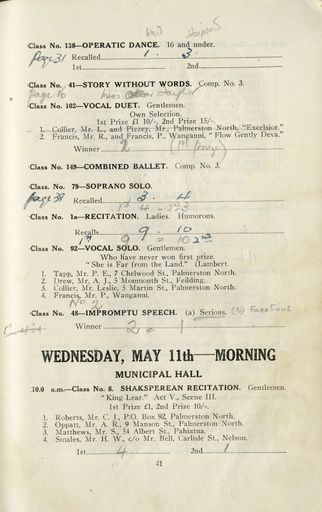 Class No. 138—OPERATIC DANCE. 16 and under.
Page 31 Recalled 1. 3
1st 2nd
Class No. 41—STORY WITHOUT WORDS. Comp. No. 3.
Page 16 Miss Taylor
Class No. 102—VOCAL DUET. Gentlemen.
Own Selection.
1st Prize £1 10/-, 2nd Prize 15/-.
1. Collier, Mr. L., and Pizzey, Mr., Palmerston North, "Excelsior."
2. Francis, Mr. R., and Francis, P., Wanganui, "Flow Gently Deva."
Winner 2 (1st Prize)
Class No. 149—COMBINED BALLET. Comp. No. 3.
Class No. 79—SOPRANO SOLO.
Page 38 Recalled 3. 4
1st 4 - 2nd 3
Class No. 1a—RECITATION. Ladies. Humorous.
Recalls 9. 10
1st 9 = 10 2nd
Class No. 92—VOCAL SOLO. Gentlemen.
Who have never won first prize.
"She is Far from the Land." (Lambert.
1. Tapp, Mr. P. E., 7 Chelwood St., Palmerston North.
2. Drew, Mr. A. J., 5 Monmouth St., Feilding.
3. Collier, Mr. Leslie, 5 Martin St., Palmerston North.
4. Francis, Mr. P., Wanganui.
No 2
Class No. 48—IMPROMPTU SPEECH. (a) Serious. (b) Facetious
Winner 2 = 1
WEDNESDAY, MAY 11th—MORNING
MUNICIPAL HALL
10.0 a.m.—Class No. 8. SHAKSPEREAN RECITATION. Gentlemen.
"King Lear." Act V., Scene III.
1st Prize £1, 2nd Prize 10/-.
1. Roberts, Mr. C. J., P.O. Box 92, Palmerston North.
2. Oppatt, Mr. A. R., 9 Manson St., Palmerston North.
3. Matthews, Mr. S., 54 Albert St., Pahiatua.
4. Smales, Mr. H. W., c/o Mr. Bell, Carlisle St., Nelson.
1st 4 2nd 1
41